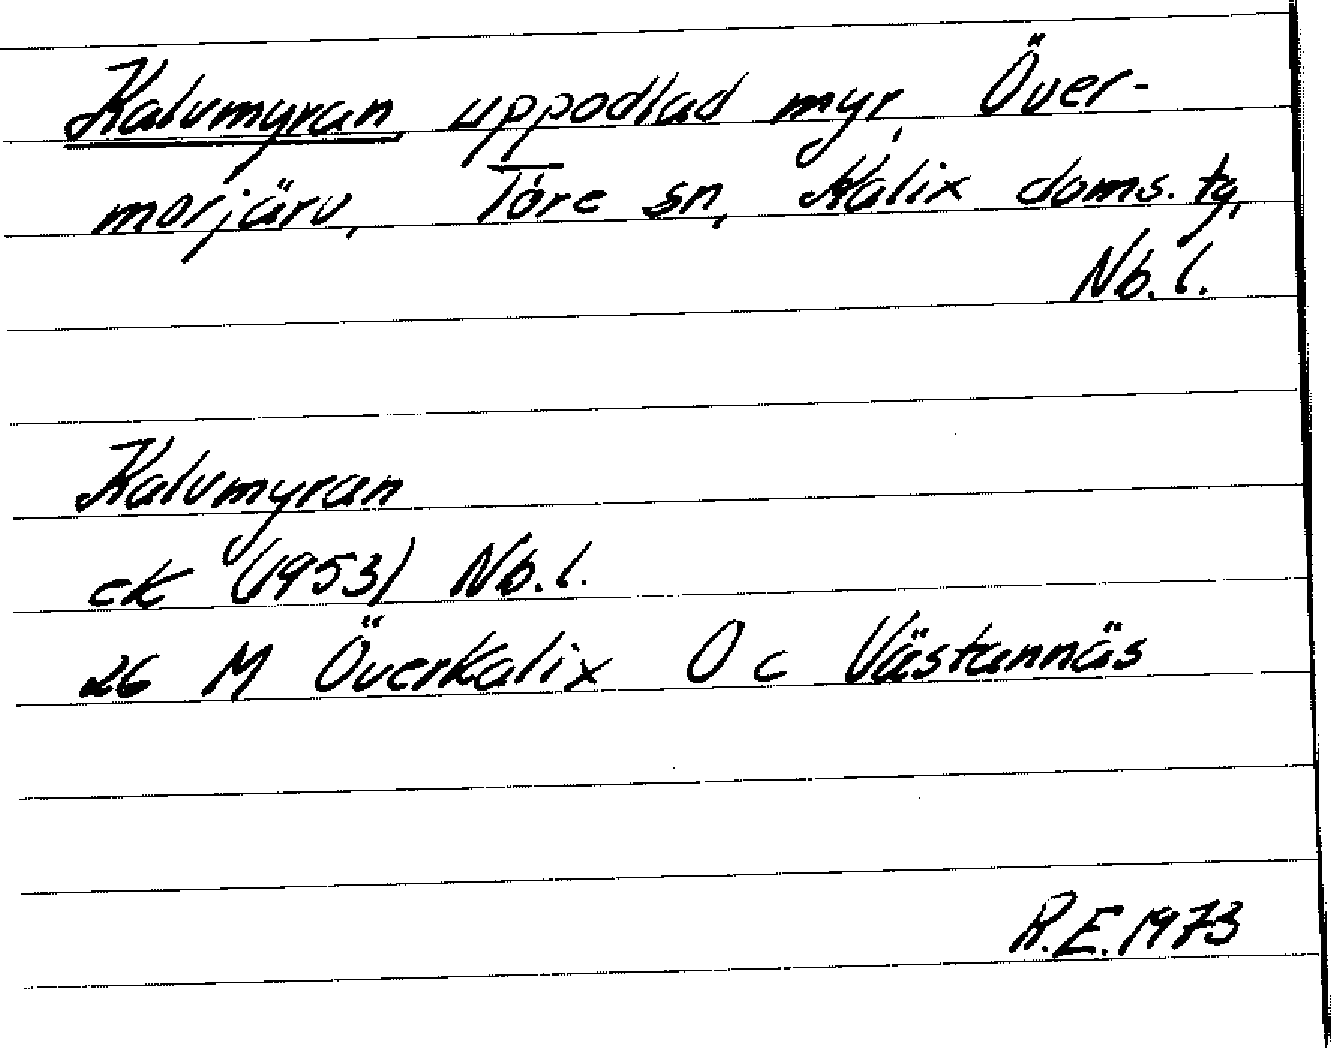 Kalvmyran uppodlad myr, Över-
morjärv, Töre sn, Kalix doms. tg,
Nb. l.
Kalvmyran
ek (1953) Nb. l.
26 M Överkalix O c Västannäs
R.E. 1973